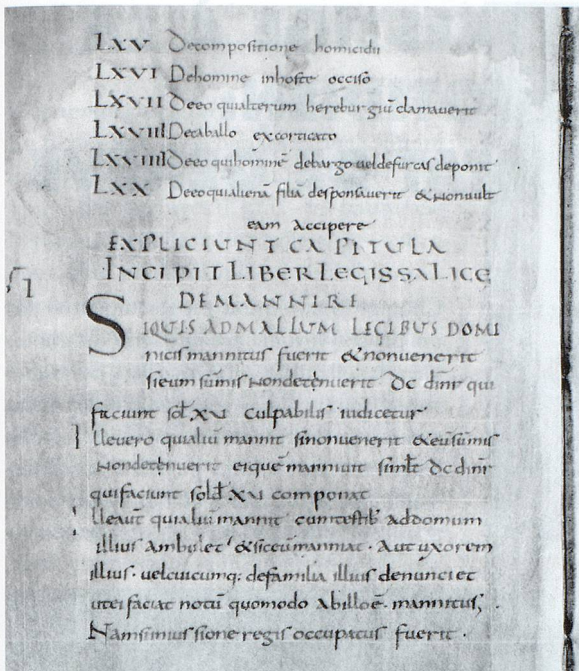 LXV Decompositione homicidii
LXVI Dehomine inhoste occiso
LXVII Deeo quialterum hereburgiū clamaverit
LXVIII Decaballo excorticato
LXVIIII Deeo quihominē debargo veldefurcas deposit
LXX Deeoquialienā filiā desponsaverit &nonvult
eam accipere
EXPLICIUNT CAPITULA
INCIPIT LIBER LEGIS SALICE
DE MANNIRE
SIQUIS ADMALLUM LEGIBUS DOMI
nicis mannitus fuerit &nonvenerit
sieum sūnis nondetenuerit dc dinr qui
faciunt sol XV culpabilis iudicetur
Illevero quialiū mannit sinonvenerit &eūsūnis
nondetenuerit eiquē mannivit dc dinr
quifaciunt sold XV componat
Illeaut quialiū mannit cumtestib addomum
illius ambulet &siceūmanniat. Aut uxorem
illius. velcuicumq: defamilia illius denunciet
uteifaciat notū quomodo abilloē. mannitus;
Namsiniussione regis occupatus fuerit.